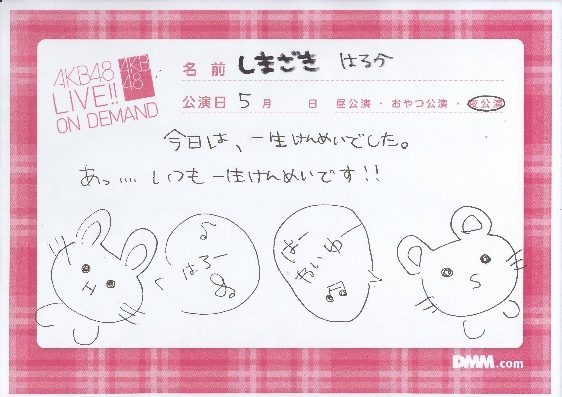 AKB48
LIVE!!
ON DEMAND
AKB
48
名前 しまざき はるか
公演日 5月 日 昼公演・おやつ公演・夜公演
今日は、一生けんめいでした。
あっ…… いつも一生けんめいです!!
はろー
はー
わいゆー
DMM.com